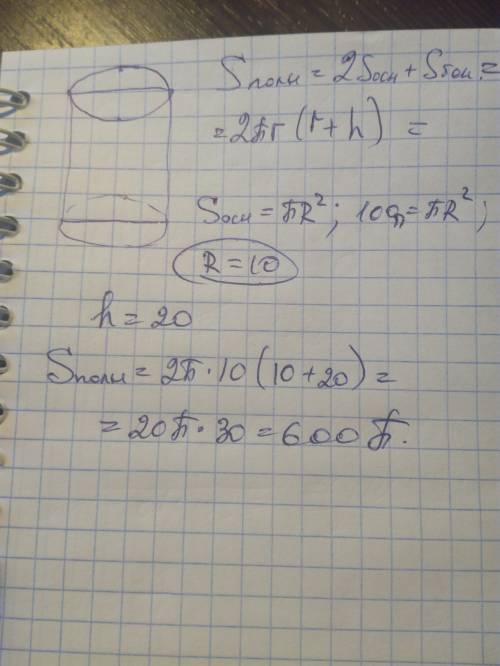 Sполн = 2Sосн + Sбок =
= 2πr (r + h) =
Sосн = πR²; 100π = πR²;
R = 10
h = 20
Sполн = 2π · 10 (10 + 20) =
= 20π · 30 = 600π.